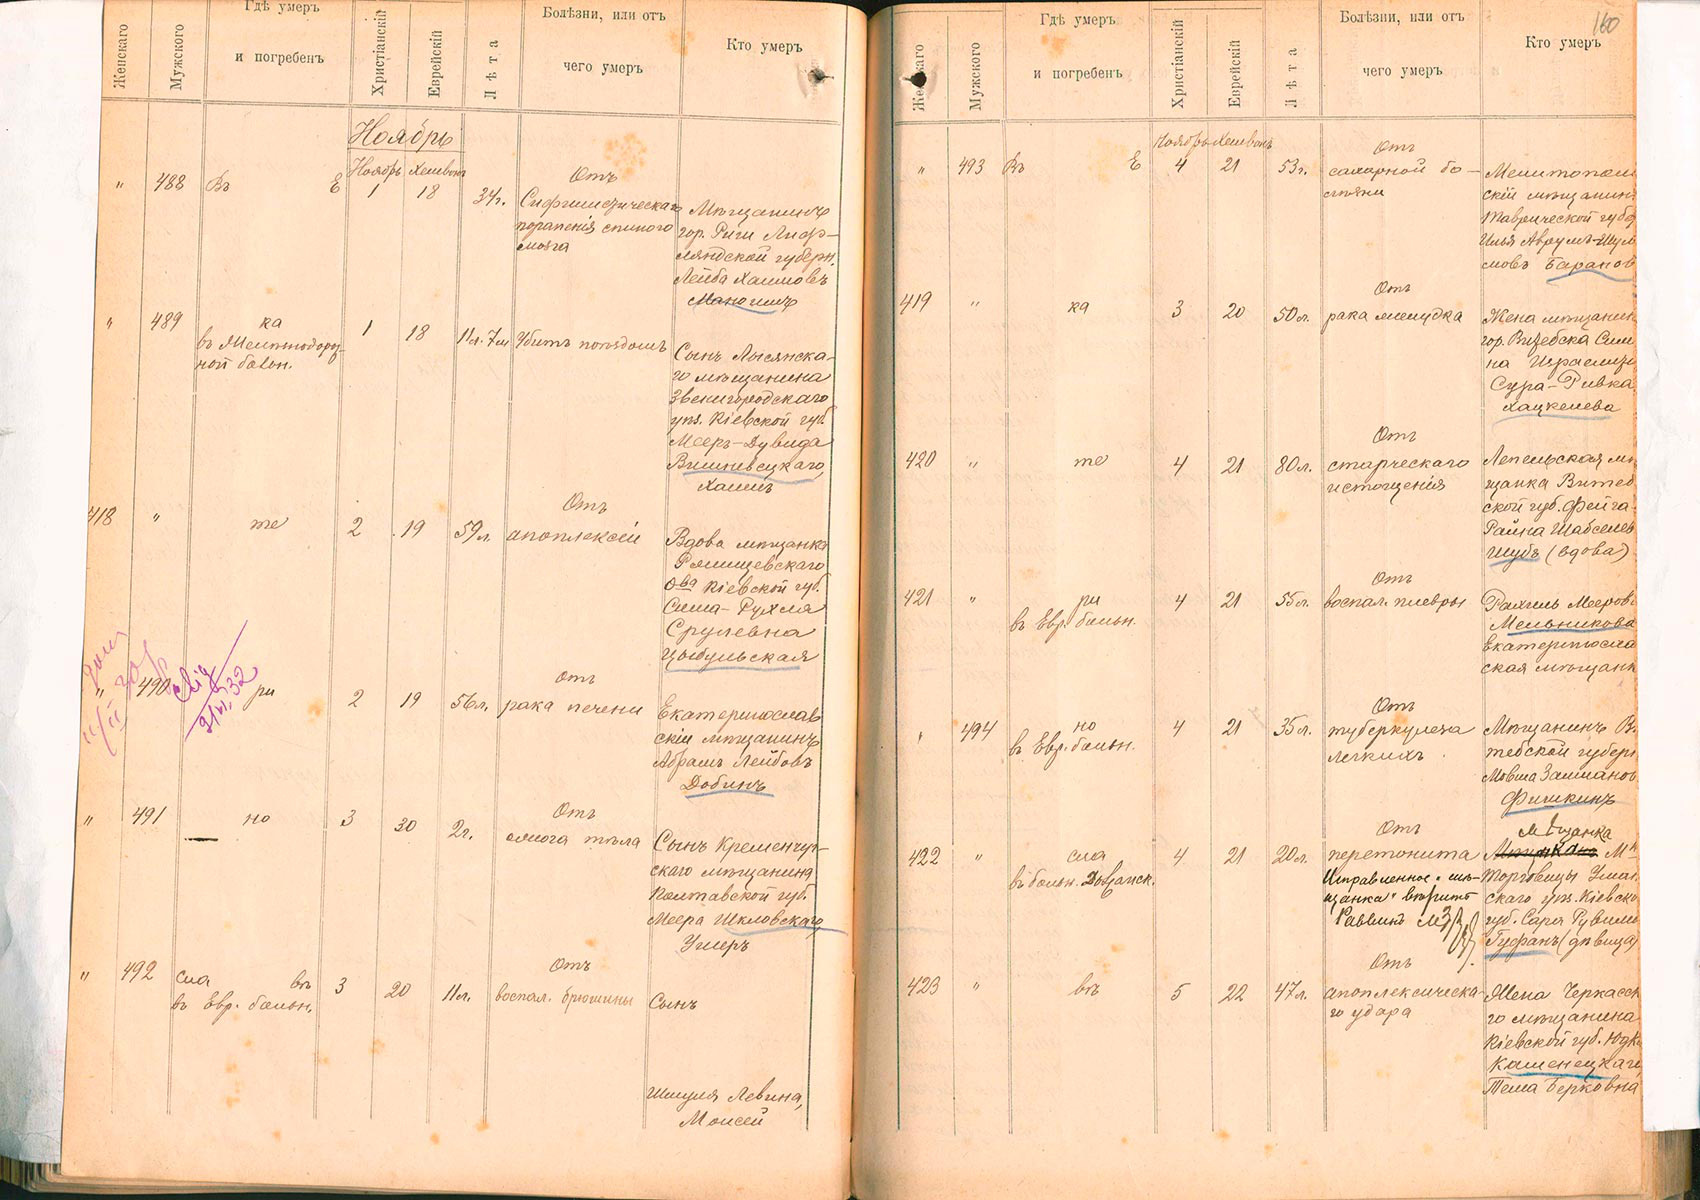 Женскаго
Мужского
Гдѣ умеръ
и погребенъ
Христіанскій
Еврейскій
Лѣта
Болѣзни, или отъ
чего умеръ
Кто умеръ
Ноябрь
Ноябрь Хешвонъ
" 488 Въ Е 1 18 34г.
Отъ
Сифилистическаго
поражения спиного
мозга
Мѣщанинъ
гор. Риги Лиф-
ляндской губерн.
Лейба Хаимовъ
" 489 ка 1 18 11л. 7м Убитъ поѣздомъ
въ Желѣзнодорож-
ной больн.
Сынъ Лысянска-
го мѣщанина
Звенигородскаго
уѣз. Кіевской губ.
Мееръ-Дувида
Вишневецкаго,
Хаимъ
418 " те 2 19 59л.
Отъ
апоплексіи
Вдова мѣщанка
Ржищевскаго
О-ва Кіевской губ.
Сима-Рухля
Срулевна
Цыбульская
" 490 ри 2 19 56л.
Отъ
рака печени
Екатеринослав
скій мѣщанинъ
Абрамъ Лейбовъ
Добинъ
" 491 но 3 30 2г.
Отъ
ожога тѣла
Сынъ Кременчуг-
скаго мѣщанина
Полтавской губ.
Меера Шкловскаго,
" 492 сла въ 3 20 11л.
въ Евр. больн.
Отъ
воспал. брюшины
Сынъ
Шмуля Левина,
Моисей
160
Женскаго
Мужского
Гдѣ умеръ
и погребенъ
Христіанскій
Еврейскій
Лѣта
Болѣзни, или отъ
чего умеръ
Кто умеръ
Ноябрь Хешвонъ
" 493 Въ Е 4 21 53г.
Отъ
сахарной бо-
лѣзни
Мелитополь
скій мѣщанин
Таврической губ
Илья Аврумъ-Шул
мовъ Баранов
419 " ка 3 20 50л.
Отъ
рака желудка
Жена мѣщанин
гор. Витебска Сим
на Израеляи
Сура-Ривка
Хацкелева
420 " те 4 21 80л.
Отъ
старческаго
истощенія
Лепельская мѣ
щанка Витеб
ской губ. Фейга-
Райна Шабселев
Шубъ (вдова)
421 " ри 4 21 55л.
въ Евр. больн.
Отъ
воспал. плевры
Рахиль Мееров
Мельникова
Екатериносла
ская мѣщанк
" 494 но 4 21 35л.
в Евр. больн.
Отъ
туберкулеза
легкихъ
Мѣщанинъ Ви
тебской губерн
Мовша Залманов
Фишкинъ
422 " сла 4 21 20л.
въ больн.
Отъ
перетонита
Исправленное "мѣ-
щанка" вѣрно
Раввинъ
мѣщанка
М-к
Торговицы Уман
скаго уѣз. Кіевско
губ. Сара Рувимо
Гуфанъ (дѣвица)
423 " въ 5 22 47л.
Отъ
апоплексическа-
го удара
Жена Черкасск
го мѣщанина
Кіевской губ. Юдк
Каменецкаго,
Тема Берковна